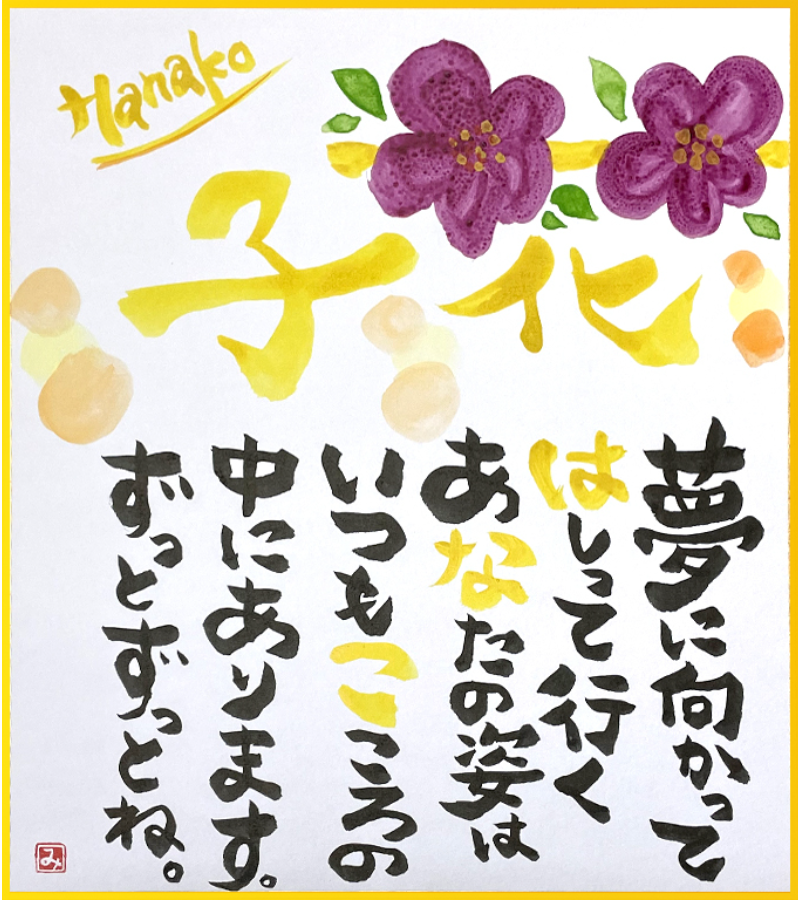 Hanako
花子
夢に向かって
はしって行く
あなたの姿は
いつもこころの
中にあります。
ずっとずっとね。
み